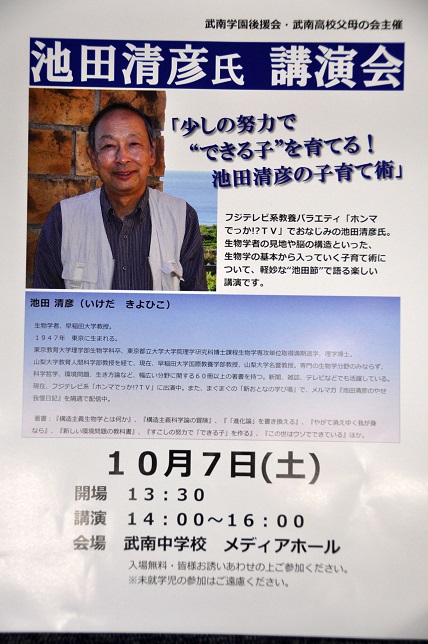 武南学園後援会・武南高校父母の会主催
池田清彦氏 講演会
「少しの努力で
“できる子”を育てる！
池田清彦の子育て術」
フジテレビ系教養バラエティ「ホンマ
でっか!?ＴＶ」でおなじみの池田清彦氏。
生物学者の見地や脳の構造といった、
生物学の基本から入っていく子育て術
について、軽妙な“池田節”で語る楽しい
講演です。
池田 清彦（いけだ きよひこ）
生物学者、早稲田大学教授。
１９４７年 東京に生まれる。
東京教育大学理学部生物学科卒、東京都立大学大学院理学研究科博士課程生物学専攻単位取得満期退学、理学博士。
山梨大学教育人間科学部教授を経て、現在、早稲田大学国際教養学部教授、山梨大学名誉教授。専門の生物学分野のみならず、
科学哲学、環境問題、生き方論など、幅広い分野に関する６０冊以上の著書を持つ。新聞、雑誌、テレビなどでも活躍している。
現在、フジテレビ系「ホンマでっか!?TV」に出演中。また、まぐまぐの「新おとなの学び場」で、メルマガ『池田清彦のやせ
我慢日記』を隔週で配信中。
著書：『構造主義生物学とは何か』、『構造主義科学論の冒険』、『「進化論」を書き換える』、『やがて消えゆく我が身
なら』、『新しい環境問題の教科書』、『すこしの努力で「できる子」を作る』、『この世はウソでできている』ほか。
１０月７日(土)
開場 １３：３０
講演 １４：００～１６：００
会場 武南中学校 メディアホール
入場無料・皆様お誘いあわせの上ご参加ください。
※未就学児の参加はご遠慮ください。